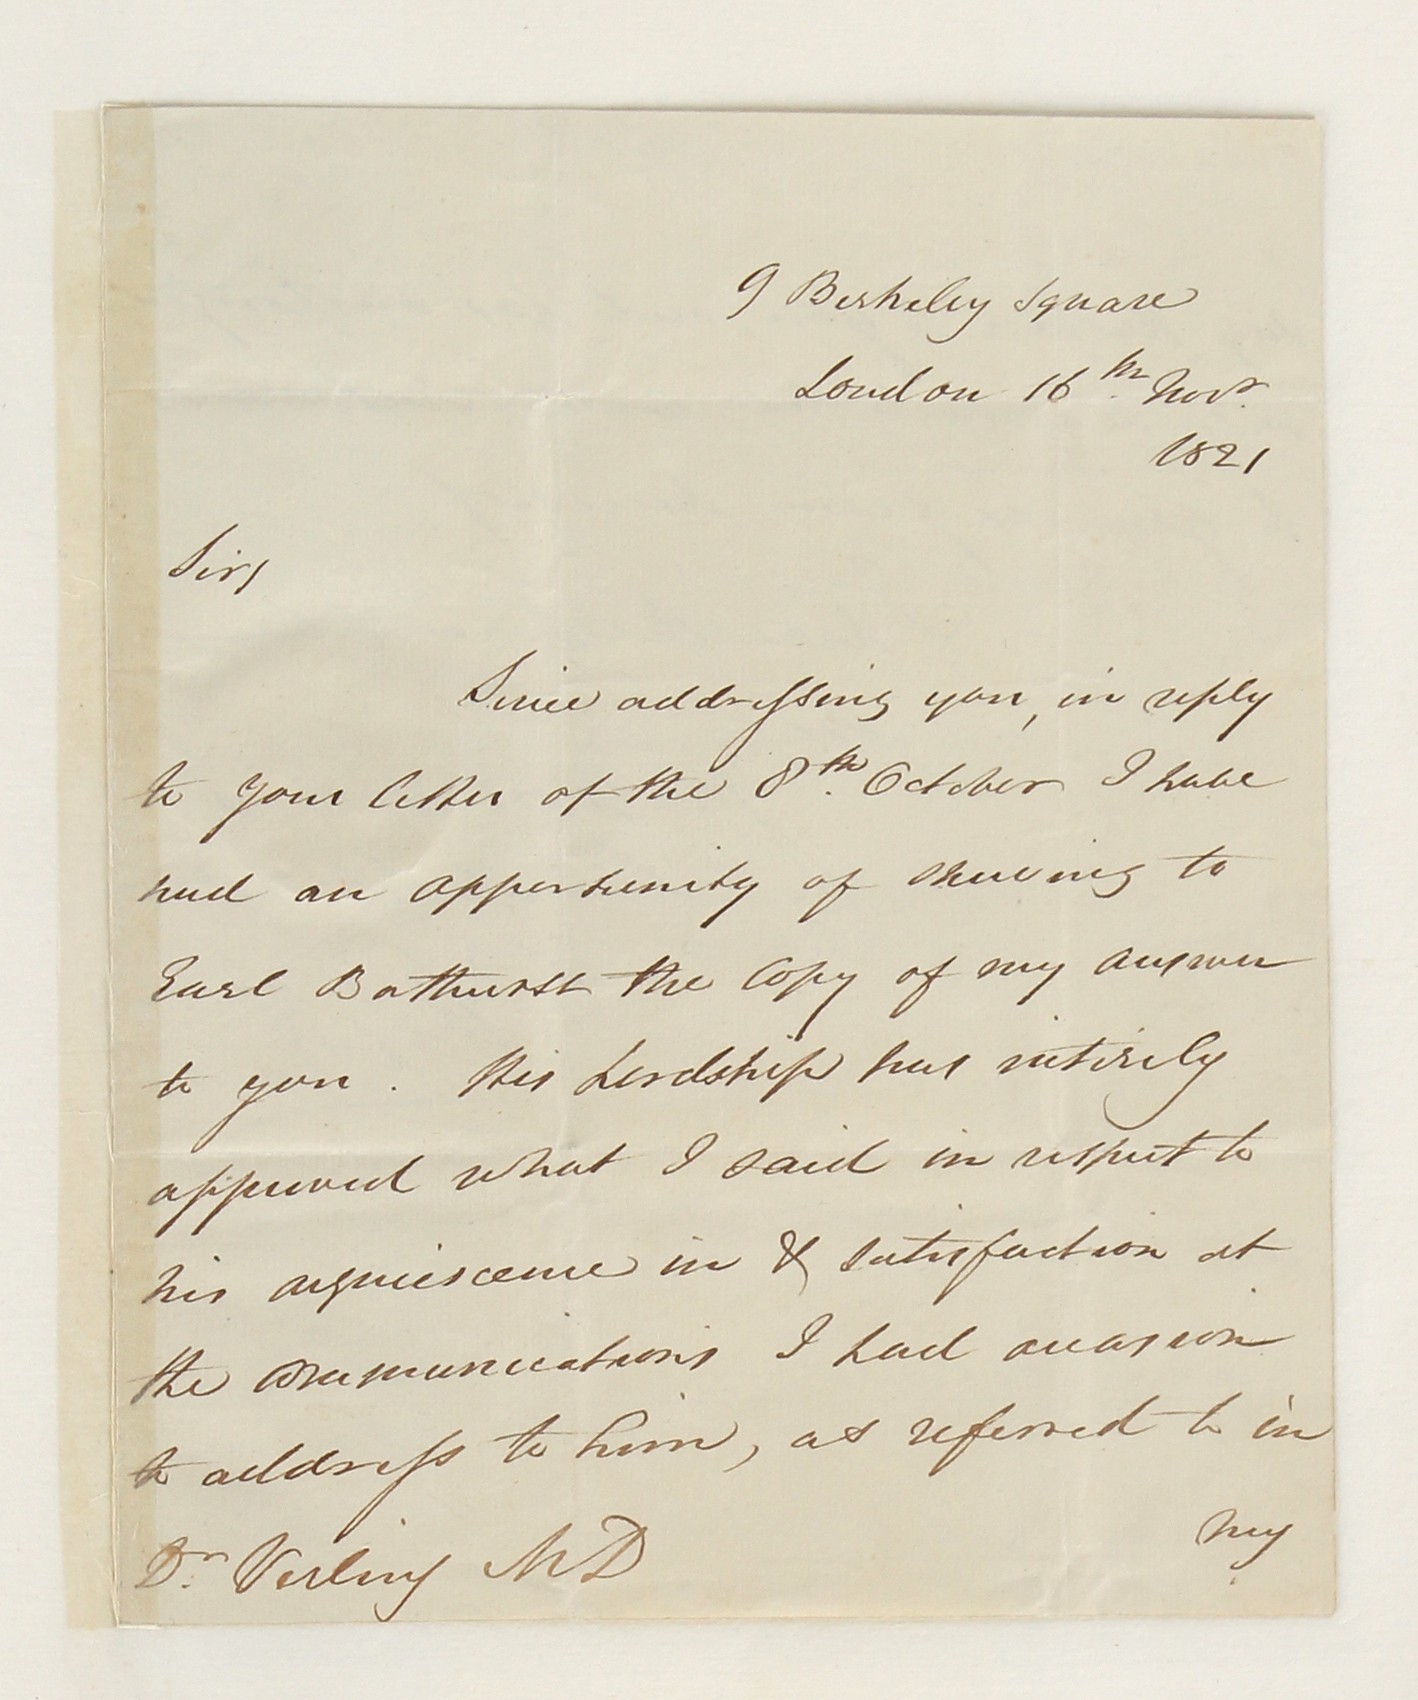 9 Berkeley Square
London 16th Novr.
1821
Sir,
Since addressing you, in reply
to your letter of the 8th. October I have
had an opportunity of shewing to
Earl Bathurst the Copy of my answer
to you. His Lordship has intirely
approved what I said in respect to
his acquiescence in & satisfaction at
the communications I had occasion
to address to him, as referred to in
my
Dr. Verling MD